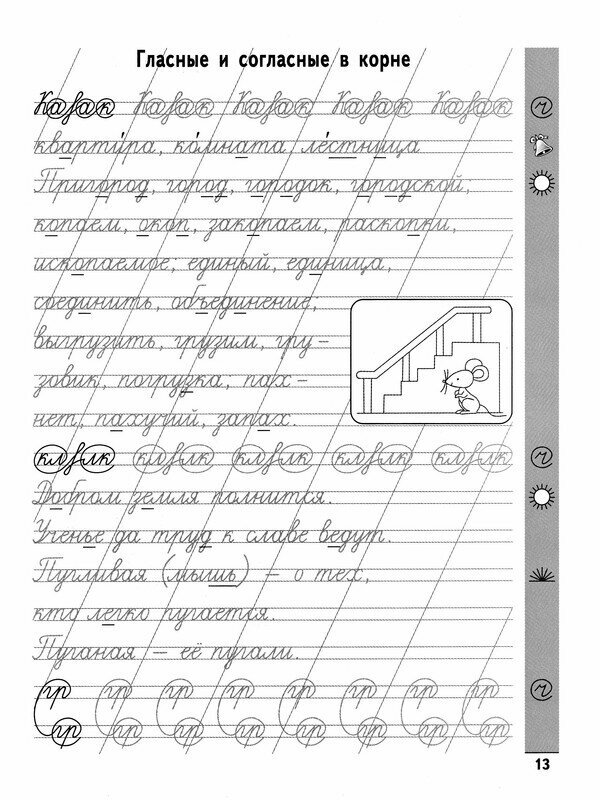 Гласные и согласные в корне
Казак Казак Казак Казак Казак
кварти́ра, ко́мната ле́стница
Пригород, город, городок, городской,
копаем, окоп, закопаем, раскопки,
ископаемое; единый, единица,
соединить, объединение;
выгрузить, грузим, гру-
зовик, погрузка; пах-
нет, пахучий, запах.
Добром земля полнится.
Ученье да труд к славе ведут.
Пугливая (мышь) – о тех,
кто легко пугается.
Пуганая – её пугали.
гр гр гр гр гр гр гр гр
гр гр гр гр гр гр гр гр
13